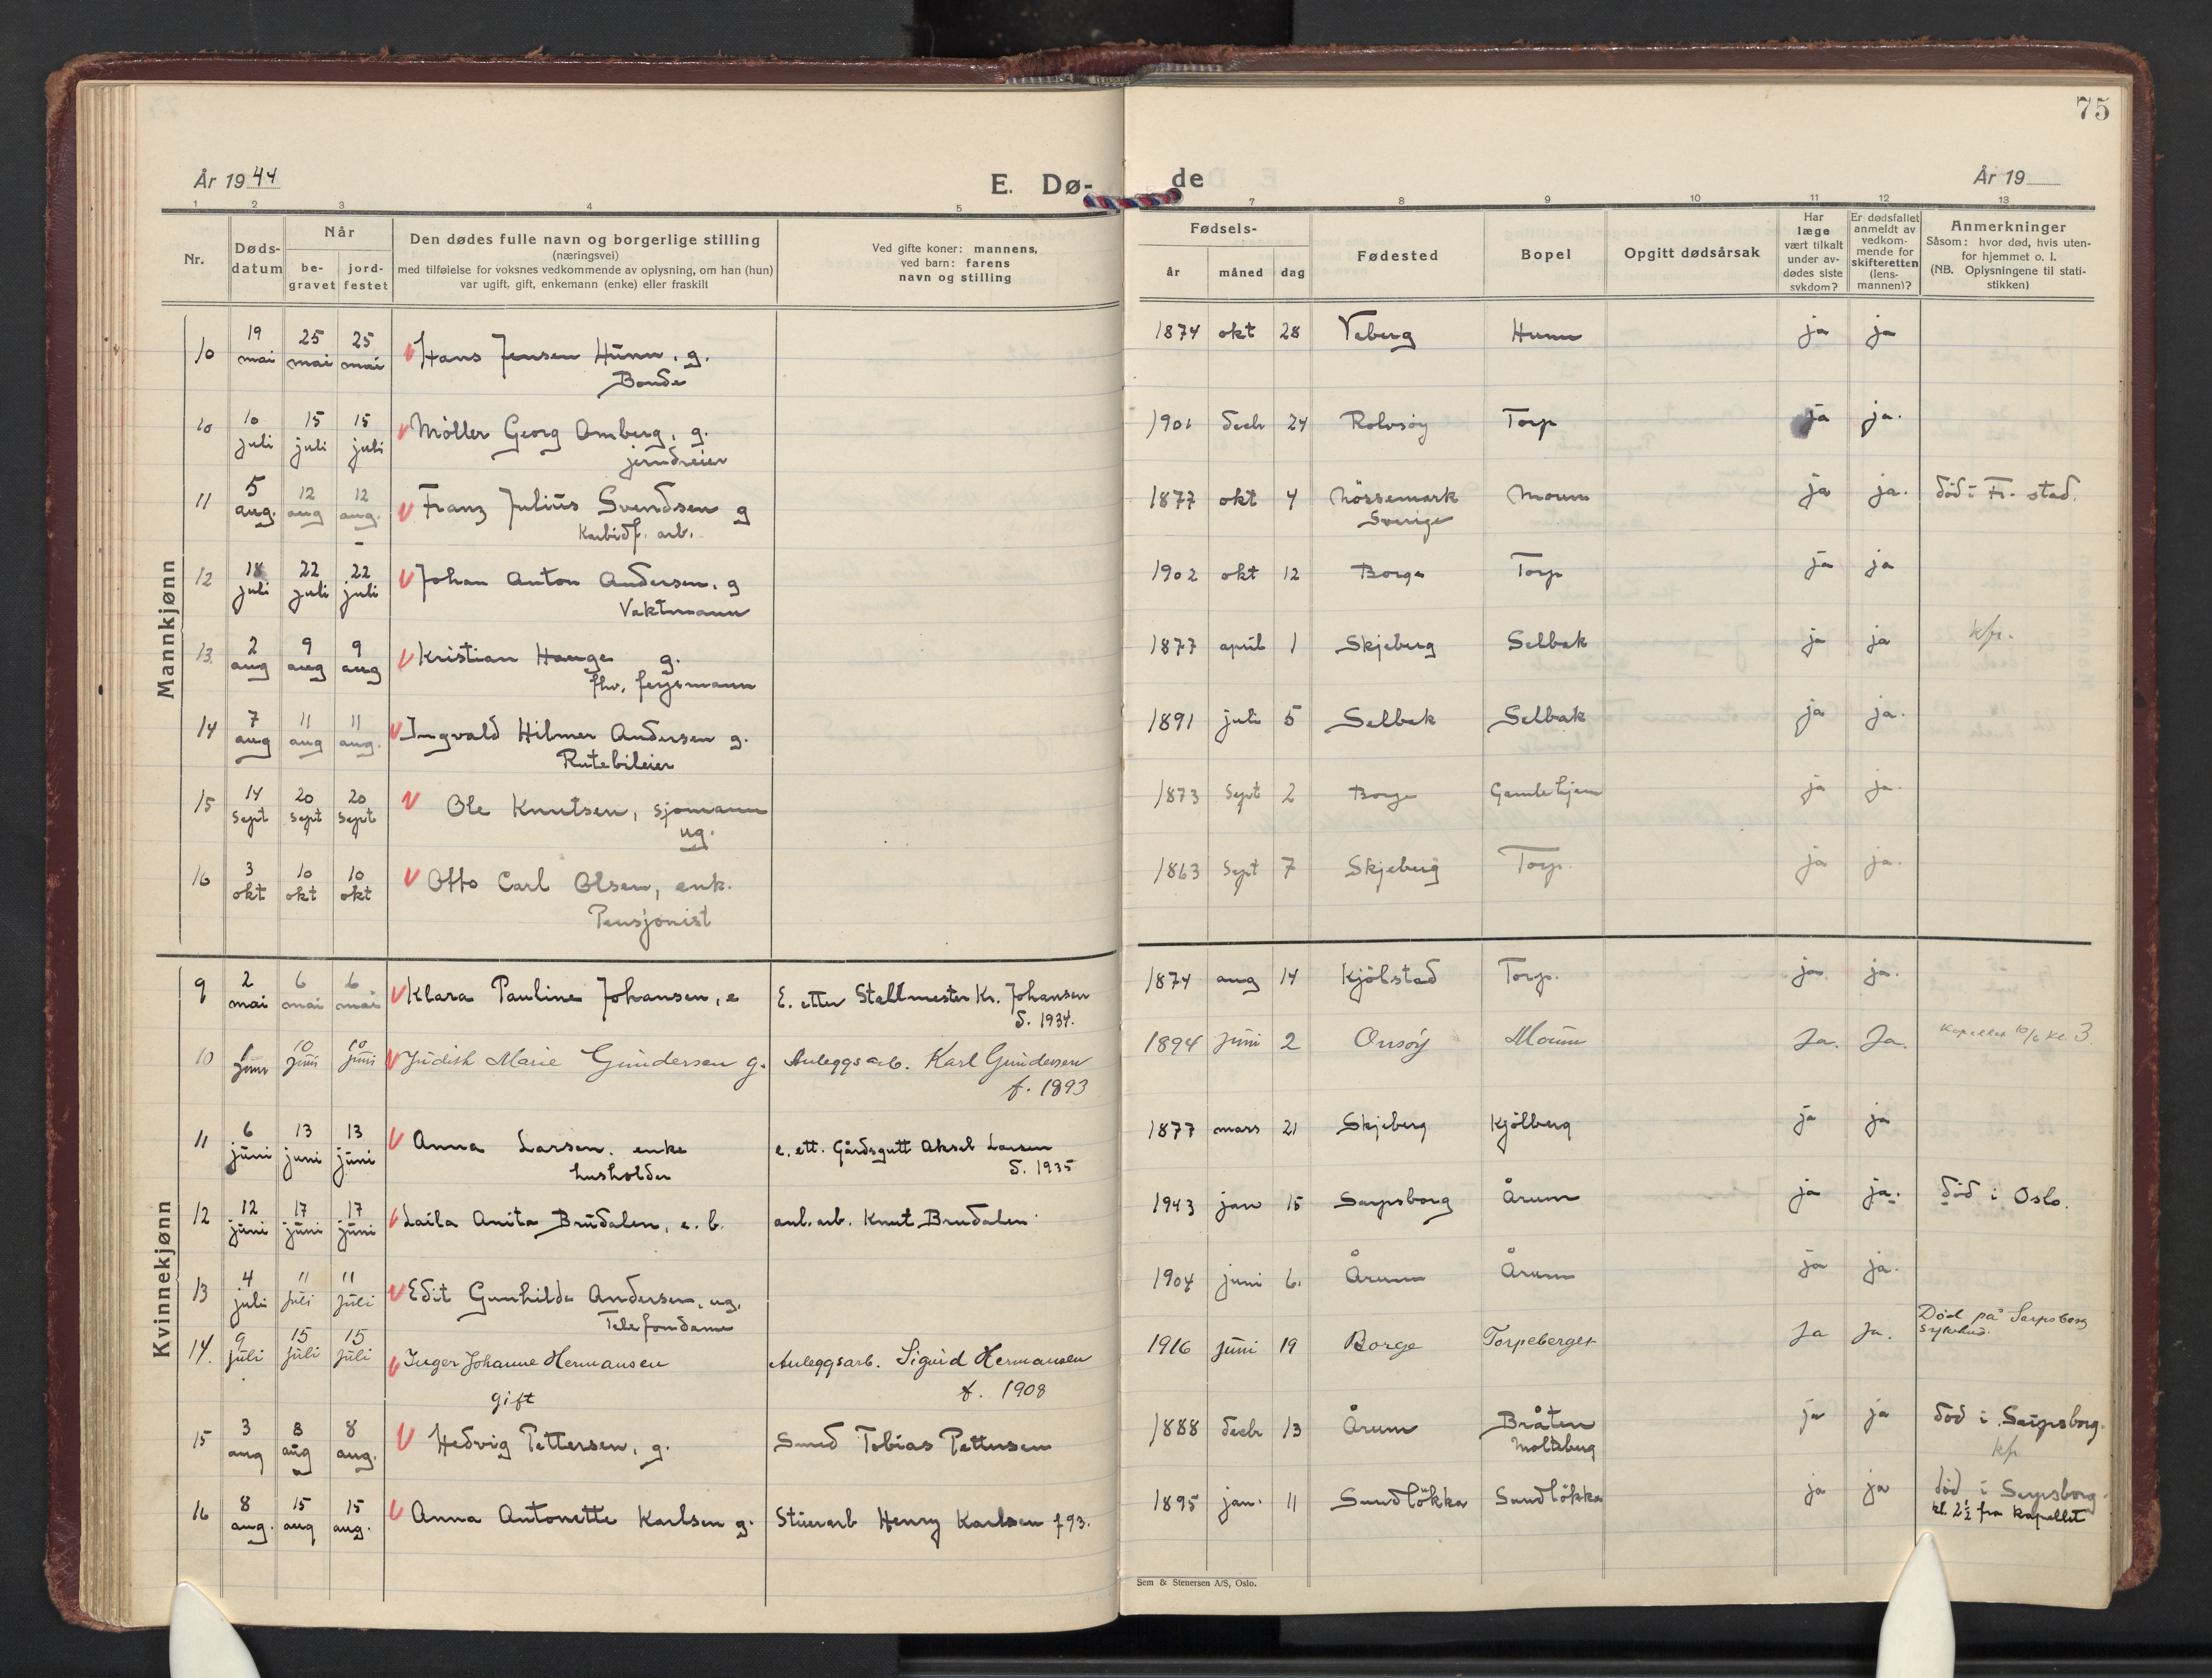 75
År 1944
E. Dø-
de
År 19
1 2 3 4 5 7 8 9 10 11 12 13
Nr.
Døds-
datum
Når
be-
gravet
jord-
festet
Den dødes fulle navn og borgerlige stilling
(næringsvei)
med tilføielse for voksnes vedkommende av oplysning, om han (hun)
var ugift, gift, enkemann (enke) eller fraskilt
Ved gifte koner: mannens,
ved barn: farens
navn og stilling
Fødsels-
år måned dag
Fødested
Bopel
Opgitt dødsårsak
Har
læge
vært tilkalt
under av-
dødes siste
sykdom?
Er dødsfallet
anmeldt av
vedkom-
mende for
skifteretten
(lens-
mannen)?
Anmerkninger
Såsom: hvor død, hvis uten-
for hjemmet o. l.
(NB. Oplysningene til stati-
stikken)
Mannkjønn
10 19 mai 25 mai 25 mai Hans Jensen Hunn, g. 1874 okt 28 Veberg Hunn ja ja
Bonde
10 10 juli 15 juli 15 juli Møller Georg Omberg, g. 1901 decbr 24 Rolvsøy Torp ja ja.
jerndreier
11 5 aug. 12 aug 12 aug. Franz Julius Svendsen g 1877 okt 4 Nössemark Moum ja ja. död i Fr. stad.
Karbidf. arb. Sverige
12 18 juli 22 juli 22 juli Johan Anton Andersen, g 1902 okt 12 Borge Torp ja ja
Vaktmann
13. 2 aug 9 aug 9 aug Kristian Hauge g. 1877 april 1 Skjeberg Selbak ja ja kfr.
fhv. fergemann
14 7 aug 11 aug 11 aug. Ingvald Hilmer Andersen g. 1891 juli 5 Selbak Selbak ja ja.
Rutebileier
15 14 sept 20 sept 20 sept Ole Knutsen, sjømann 1873 sept 2 Borge Gamlehjem ja ja.
ug.
16 3 okt 10 okt 10 okt Otto Carl Olsen, enk. 1863 sept 7 Skjeberg Torp. ja ja.
Pensjonist
Kvinnekjønn
9 2 mai 6 mai 6 mai Klara Pauline Johansen, e E. etter Stallmester Kr. Johansen 1874 aug 14 Kjölstad Torp. ja. ja.
d. 1934.
10 6 juni 10 juni 10 juni Judith Marie Gundersen g. Anleggsarb. Karl Gundersen 1894 juni 2 Onsöy Moum Ja. Ja. Kapellet 10/6 kl. 3.
f. 1893
11 6 juni 13 juni 13 juni Anna Larsen. enke e. ett. Gårdsgutt Aksel Larsen 1877 mars 21 Skjeberg Kjölberg ja ja
husholder d. 1935
12 12 juni 17 juni 17 juni Laila Anita Brudalen, e. b. anl. arb. Knut Brudalen 1943 jan 15 Sarpsborg Årum ja ja. död i Oslo.
13 4 juli 11 juli 11 juli Edit Gunhilde Andersen, ug. 1904 juni 6. Årum Årum ja ja.
Telefondame
14. 9 juli 15 juli 15 juli Inger Johanne Hermansen Anleggsarb. Sigurd Hermansen 1916 juni 19 Borge Torpeberget Ja Ja. Död på Sarpsborg
sykehus.
gift f. 1908
15 3 aug 8 aug 8 aug. Hedvig Pettersen, g. Smed Tobias Pettersen 1888 decbr 13 Årum Bråten ja ja död i Sarpsborg.
Molteberg kfr
16 8 aug. 15 aug 15 aug. Anna Antonette Karlsen g. Stuerarb Henry Karlsen f 93. 1895 jan. 11 Sundlökka Sundlökka ja ja död i Sarpsborg.
kl. 2½ fra kapellet
Sem & Stenersen A/S, Oslo.